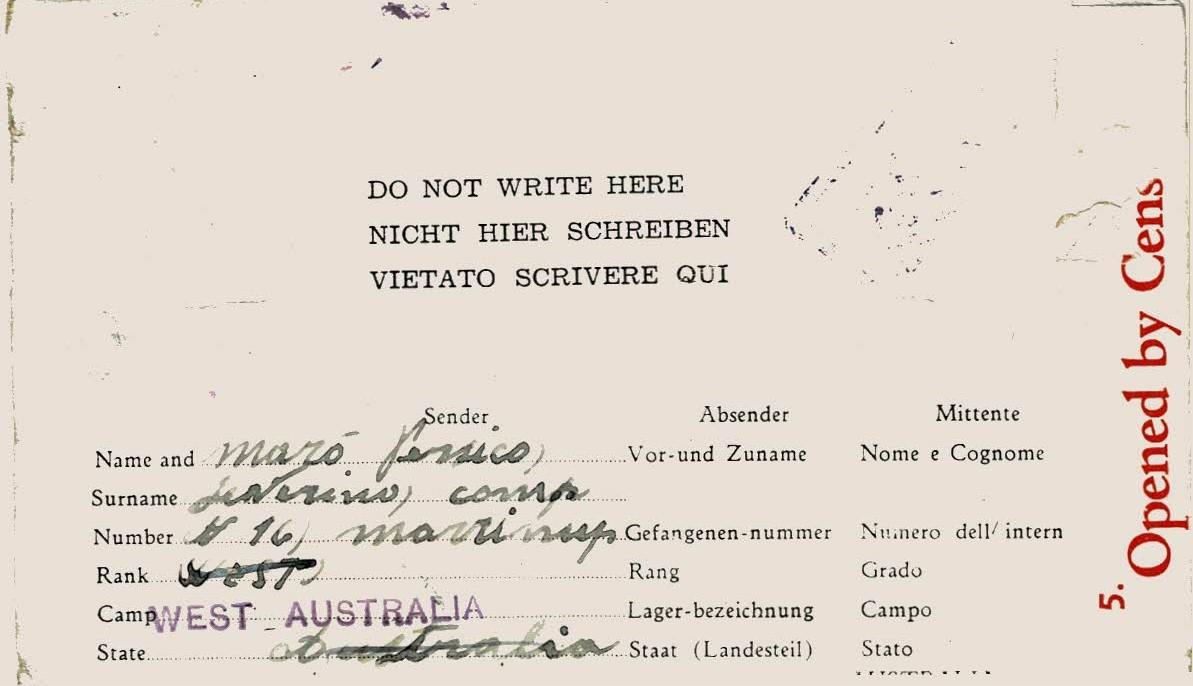 DO NOT WRITE HERE
NICHT HIER SCHREIBEN
VIETATO SCRIVERE QUI
Sender Absender Mittente
Name and Vor-und Zuname Nome e Cognome
Surname Severino, comp
Number N 16, marrinup Gefangenen-nummer Numero dell/ intern
Rank West) Rang Grado
Camp WEST AUSTRALIA Lager-bezeichnung Campo
State Australia Staat (Landesteil) Stato
5. Opened by Cens